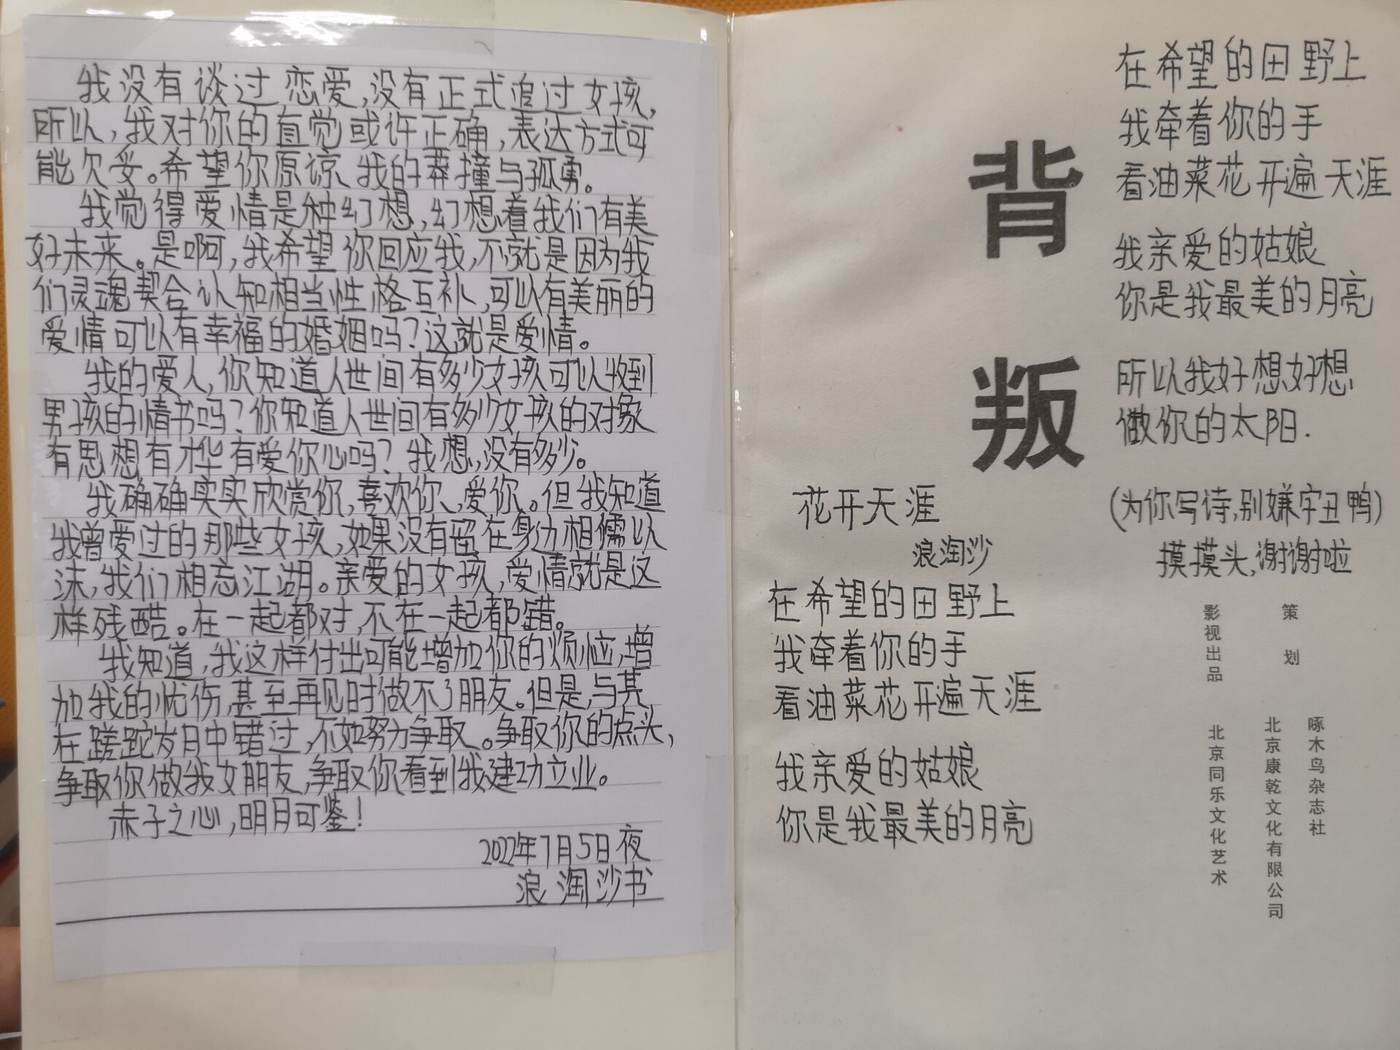 我没有谈过恋爱,没有正式追过女孩,
所以,我对你的直觉或许正确,表达方式可
能欠妥。希望你原谅我的莽撞与孤勇。
我觉得爱情是种幻想,幻想着我们有美
好未来。是啊,我希望你回应我,不就是因为我
们灵魂契合认知相当性格互补,可以有美丽的
爱情可以有幸福的婚姻吗?这就是爱情。
我的爱人,你知道人世间有多少女孩可以收到
男孩的情书吗?你知道人世间有多少女孩的对象
有思想有才华有爱你心吗?我想,没有多少。
我确确实实欣赏你,喜欢你、爱你。但我知道
我曾爱过的那些女孩,如果没有留在身边相儒以
沫,我们相忘江湖。亲爱的女孩,爱情就是这
样残酷。在一起都对,不在一起都错。
我知道,我这样付出可能增加你的烦恼,增
加我的忧伤,甚至再见时做不了朋友。但是,与其
在蹉跎岁月中错过,不如努力争取。争取你的点头,
争取你做我女朋友,争取你看到我建功立业。
赤子之心,明月可鉴!
2022年7月5日夜
浪淘沙书
背叛
花开天涯
浪淘沙
在希望的田野上
我牵着你的手
看油菜花开遍天涯
我亲爱的姑娘
你是我最美的月亮
在希望的田野上
我牵着你的手
看油菜花开遍天涯
我亲爱的姑娘
你是我最美的月亮
所以我好想好想
做你的太阳.
(为你写诗,别嫌字丑鸭)
摸摸头,谢谢啦
策划
啄木鸟杂志社
北京康乾文化有限公司
影视出品
北京同乐文化艺术